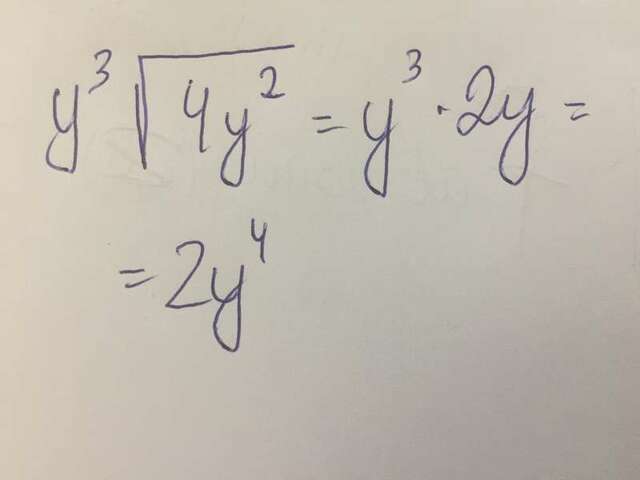 y³√4y² = y³ · 2y =
= 2y⁴